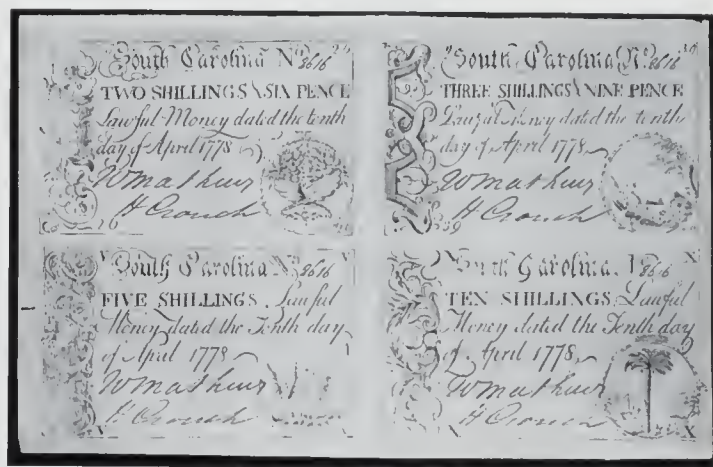 South Carolina No 8616
TWO SHILLINGS & SIX PENCE
Lawful Money dated the tenth
day of April 1778
Wmathews
H Crouch
South Carolina No 8616
THREE SHILLINGS & NINE PENCE
Lawful Money dated the tenth
day of April 1778
Wmathews
H Crouch
39
South Carolina No 8616 V
FIVE SHILLINGS, Lawful
Money dated the Tenth day
of April 1778
Wmathews
H Crouch
V
South Carolina 8616 X
TEN SHILLINGS, Lawful
Money dated the Tenth day
of April 1778
Wmathews
H Crouch
X